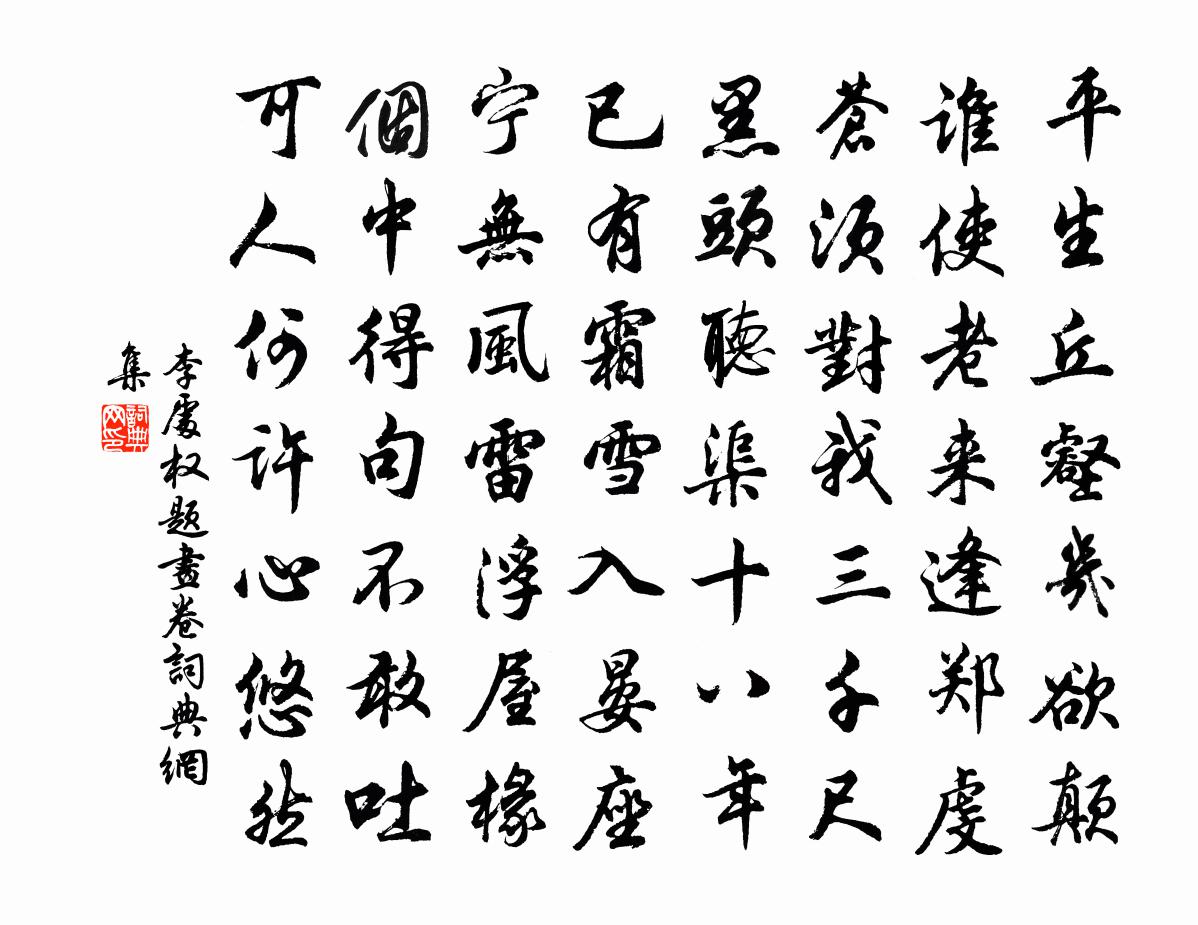 平生丘壑幾欲顛
谁使老来逢郑虔
蒼须對我三千尺
黑頭聽渠十八年
已有霜雪入晏座
宁無風雷浮屋椽
個中得句不敢吐
可人何许心悠然
李處权题畫卷詞典網
集
詞典网印